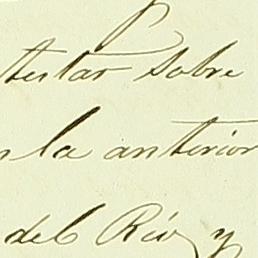 testar sobre
la anterior
del Rio y